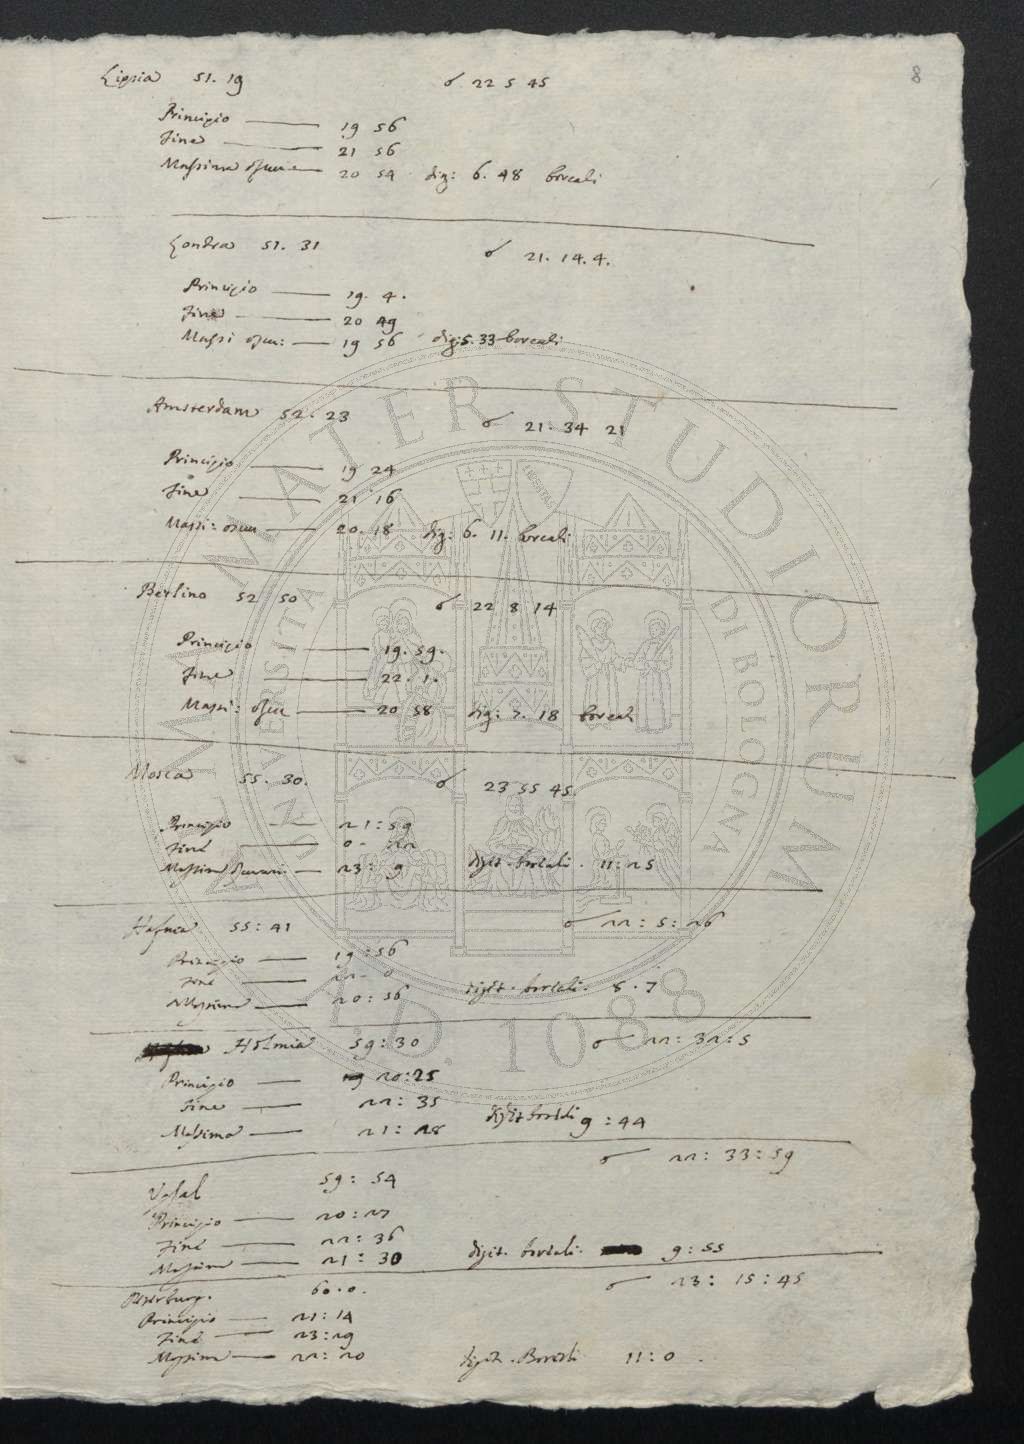 8
Lipsia 51. 19 ☌ 22 5 45
Principio 19 56
Fine 21 56
Massima oscur. 20 54 dig: 6. 48 boreali
Londra 51. 31 ☌ 21. 14. 4.
Principio 19. 4.
Fine 20 49
Massi oscu: 19 56 dig: 5. 33 boreali
Amsterdam 52. 23 ☌ 21. 34 21
Principio 19 24
Fine 21 16
Massi: oscu 20. 18 dig: 6. 11. boreali
Berlino 52 50 ☌ 22 8 14
Principio 19. 59.
Fine 22. 1.
Massi: oscu 20 58 dig: 7. 18 boreali
Mosca 55. 30. ☌ 23 55 45.
Principio 21: 59
Fine 0 - 22
Massima 23: 9 digit. boreali. 11: 25
Hafnia 55: 41 ☌ 22: 5: 26
Principio 19: 56
Fine 22 - 0
Massima 20: 56 digit. boreali. 8. 7
Holmia 59: 30 ☌ 22: 32: 5
Principio 20: 25
Fine 22: 35
Massima 21: 28 digit boreali 9: 44
☌ 22: 33: 59
Upsal 59: 54
Principio 20: 27
Fine 22: 36
Massima 21: 30 digit. boreali. 9: 55
Peterburg. 60. 0. ☌ 23: 15: 45
Principio 21: 14
Fine 23: 29
Massima 22: 20 digit. Boreali 11: 0.
ALMA MATER STUDIORUM
A.D. 1088
UNIVERSITÀ DI BOLOGNA